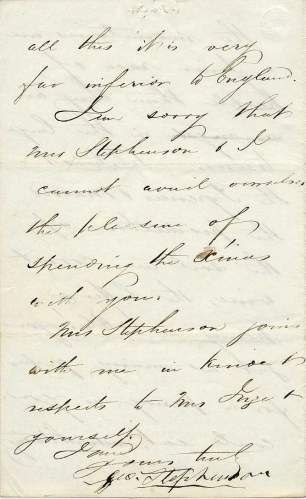 all this it is very
far inferior to England.
I am sorry that
Mrs Stephenson & I
cannot avail ourselves
the pleasure of
spending the Xmas
with you.
Mrs Stephenson joins
with me in kindest
respects to Mrs &
yourself.
I am
yours truly
Geo: Stephenson